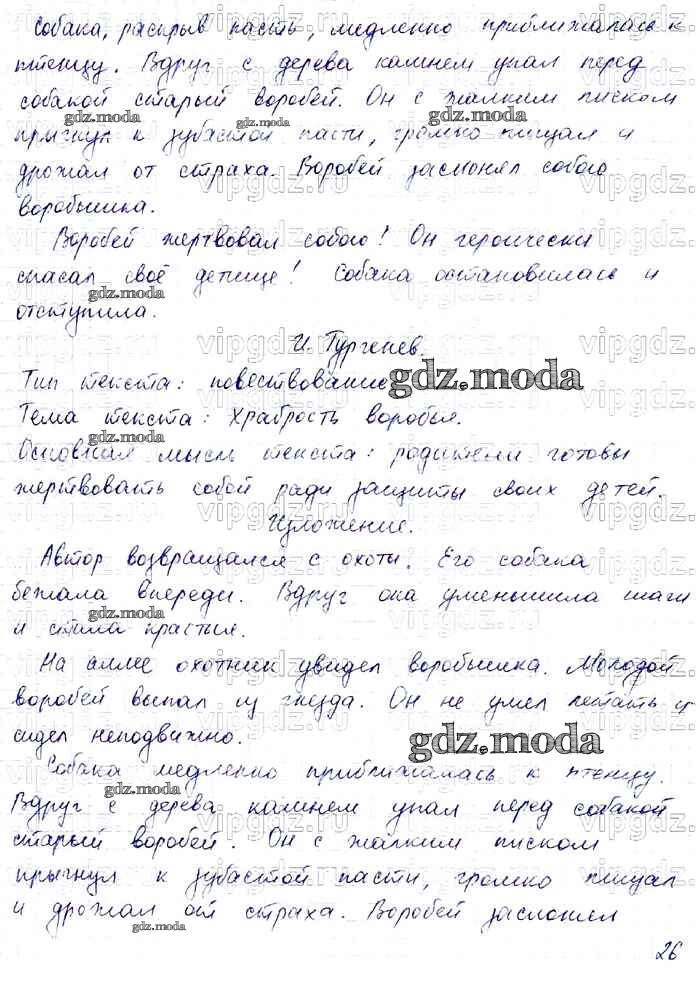 собака, раскрыв пасть, медленно приближалась к
птенцу. Вдруг с дерева камнем упал перед
собакой старый воробей. Он с жалким писком
прыгнул к зубастой пасти, громко пищал и
дрожал от страха. Воробей заслонял собою
воробышка.
Воробей жертвовал собою! Он героически
спасал своё детище! Собака остановилась и
отступила.
И. Тургенев.
Тип текста: повествование
Тема текста: храбрость воробья.
Основная мысль текста: родители готовы
жертвовать собой ради защиты своих детей.
Изложение.
Автор возвращался с охоты. Его собака
бежала впереди. Вдруг она уменьшила шаги
и стала красться.
На аллее охотник увидел воробышка. Молодой
воробей выпал из гнезда. Он не умел летать и
сидел неподвижно.
Собака медленно приближалась к птенцу.
Вдруг с дерева камнем упал перед собакой
старый воробей. Он с жалким писком
прыгнул к зубастой пасти, громко пищал
и дрожал от страха. Воробей заслонял
26
gdz.moda
vipgdz.ru